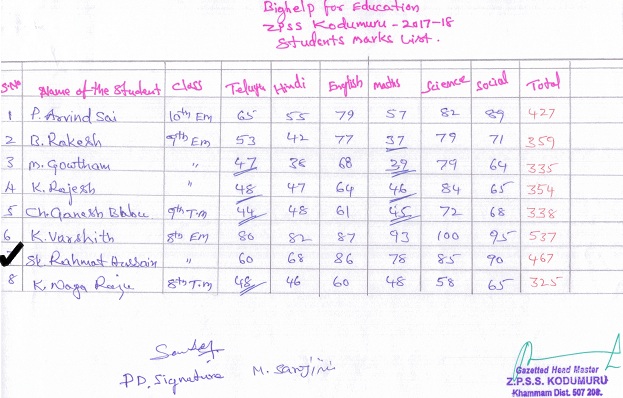 Bighelp for Education
ZPSS Kodumuru - 2017-18
Students Marks List.
S.No Name of the Student Class Telugu Hindi English maths Science Social Total
1 P. Arvind Sai 10th Em 65 55 79 57 82 89 427
2 B. Rakesh 9th Em 53 42 77 37 79 71 359
3 M. Goutham " 47 38 68 39 79 64 335
4 K. Rajesh " 48 47 64 46 84 65 354
5 Ch. Ganesh Babu 9th T.m 44 48 61 45 72 68 338
6 K. Varshith 8th Em 80 82 87 93 100 95 537
Sk. Rahmat Hussain " 60 68 86 78 85 90 467
8 K. Naga Raju 8th T.m 48 46 60 48 58 65 325
P.D. Signature M. Sarojini
Gazetted Head Master
Z.P.S.S. KODUMURU
Khammam Dist. 507 208.